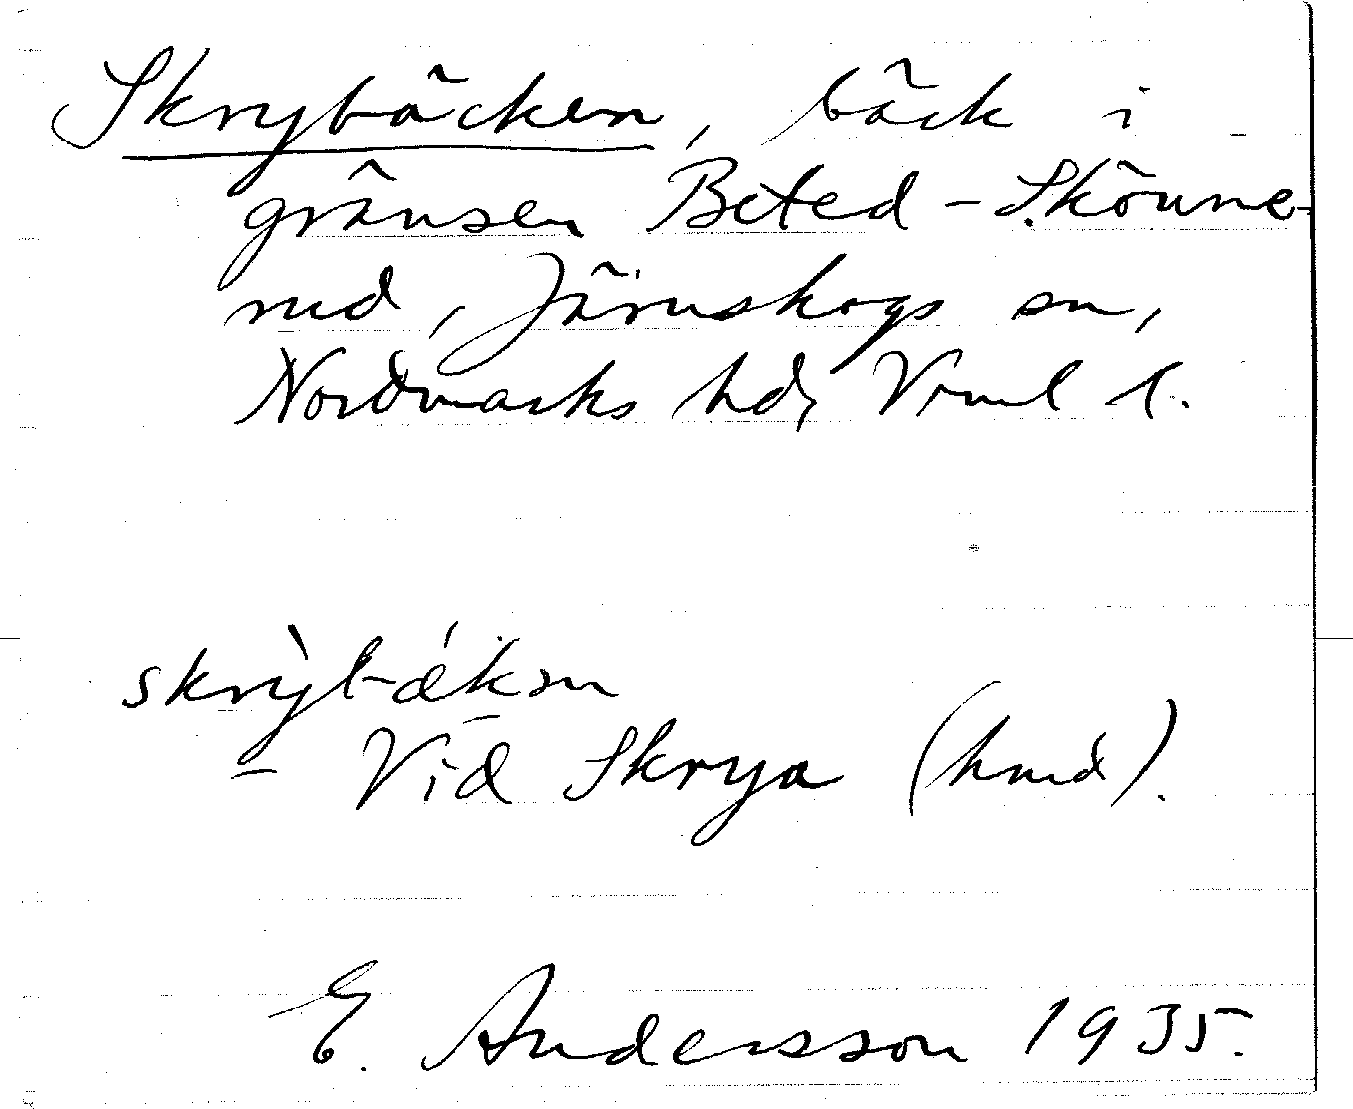 Skrybäcken, bäck i
gränsen Beted - S. Könne-
rud, Järnskogs sn,
Nordmarks hd, Vrml l.
skrỳb-ǽkən
- Vid Skrya (hmd).
E. Andersson 1935.